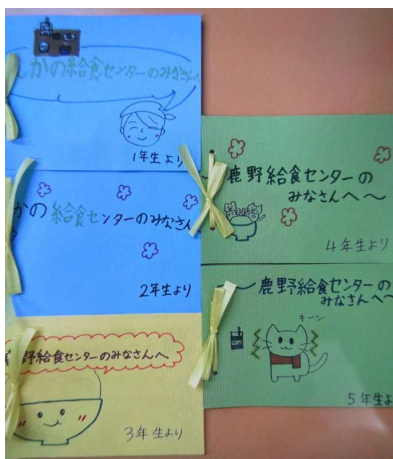 かの給食センターのみなさんへ
1年生より
かの 給食センターのみなさん
2年生より
野給食センターのみなさんへ
3年生より
鹿野給食センターの
みなさんへ〜
4年生より
鹿野給食センターの
みなさんへ〜
キーン
5年生より